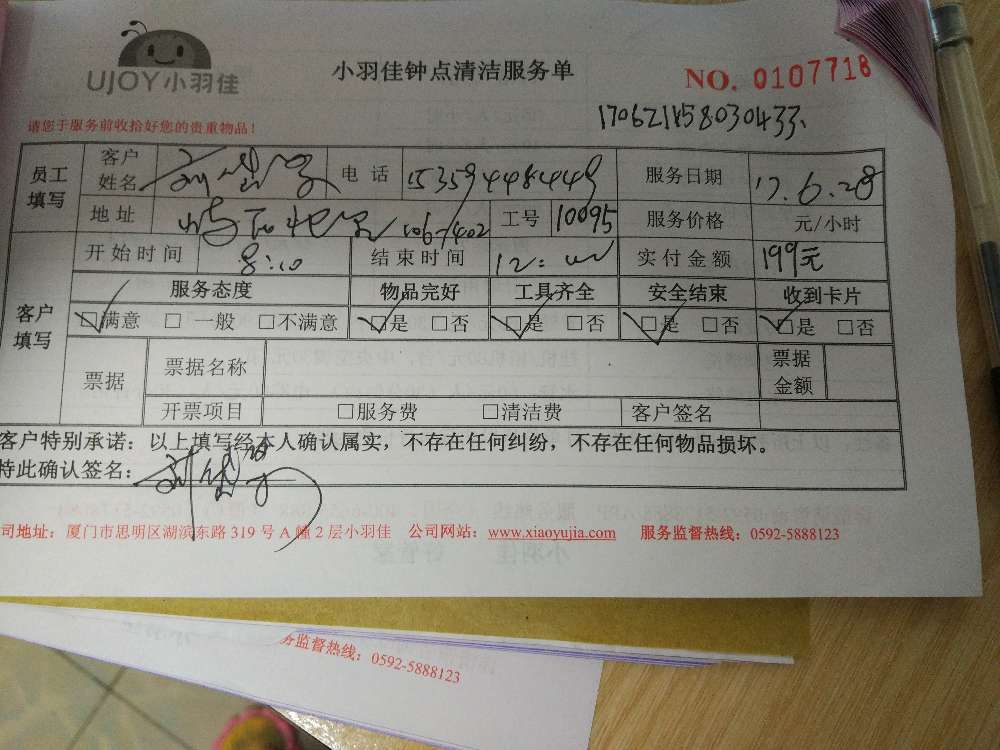 UJOY小羽佳
小羽佳钟点清洁服务单
NO. 0107718
请您于服务前收拾好您的贵重物品！
员工填写 客户姓名 电话 15359448449 服务日期 17.6.28
地址 106-402 工号 10095 服务价格 元/小时
开始时间 8:10 结束时间 12: 实付金额 199元
客户填写 服务态度 物品完好 工具齐全 安全结束 收到卡片
□满意 □一般 □不满意 □是 □否 □是 □否 □是 □否 □是 □否
票据 票据名称 票据金额
开票项目 □服务费 □清洁费 客户签名
客户特别承诺：以上填写经本人确认属实，不存在任何纠纷，不存在任何物品损坏。
特此确认签名：
司地址：厦门市思明区湖滨东路 319 号 A 幢 2 层小羽佳 公司网站：www.xiaoyujia.com 服务监督热线：0592-5888123
务监督热线：0592-5888123